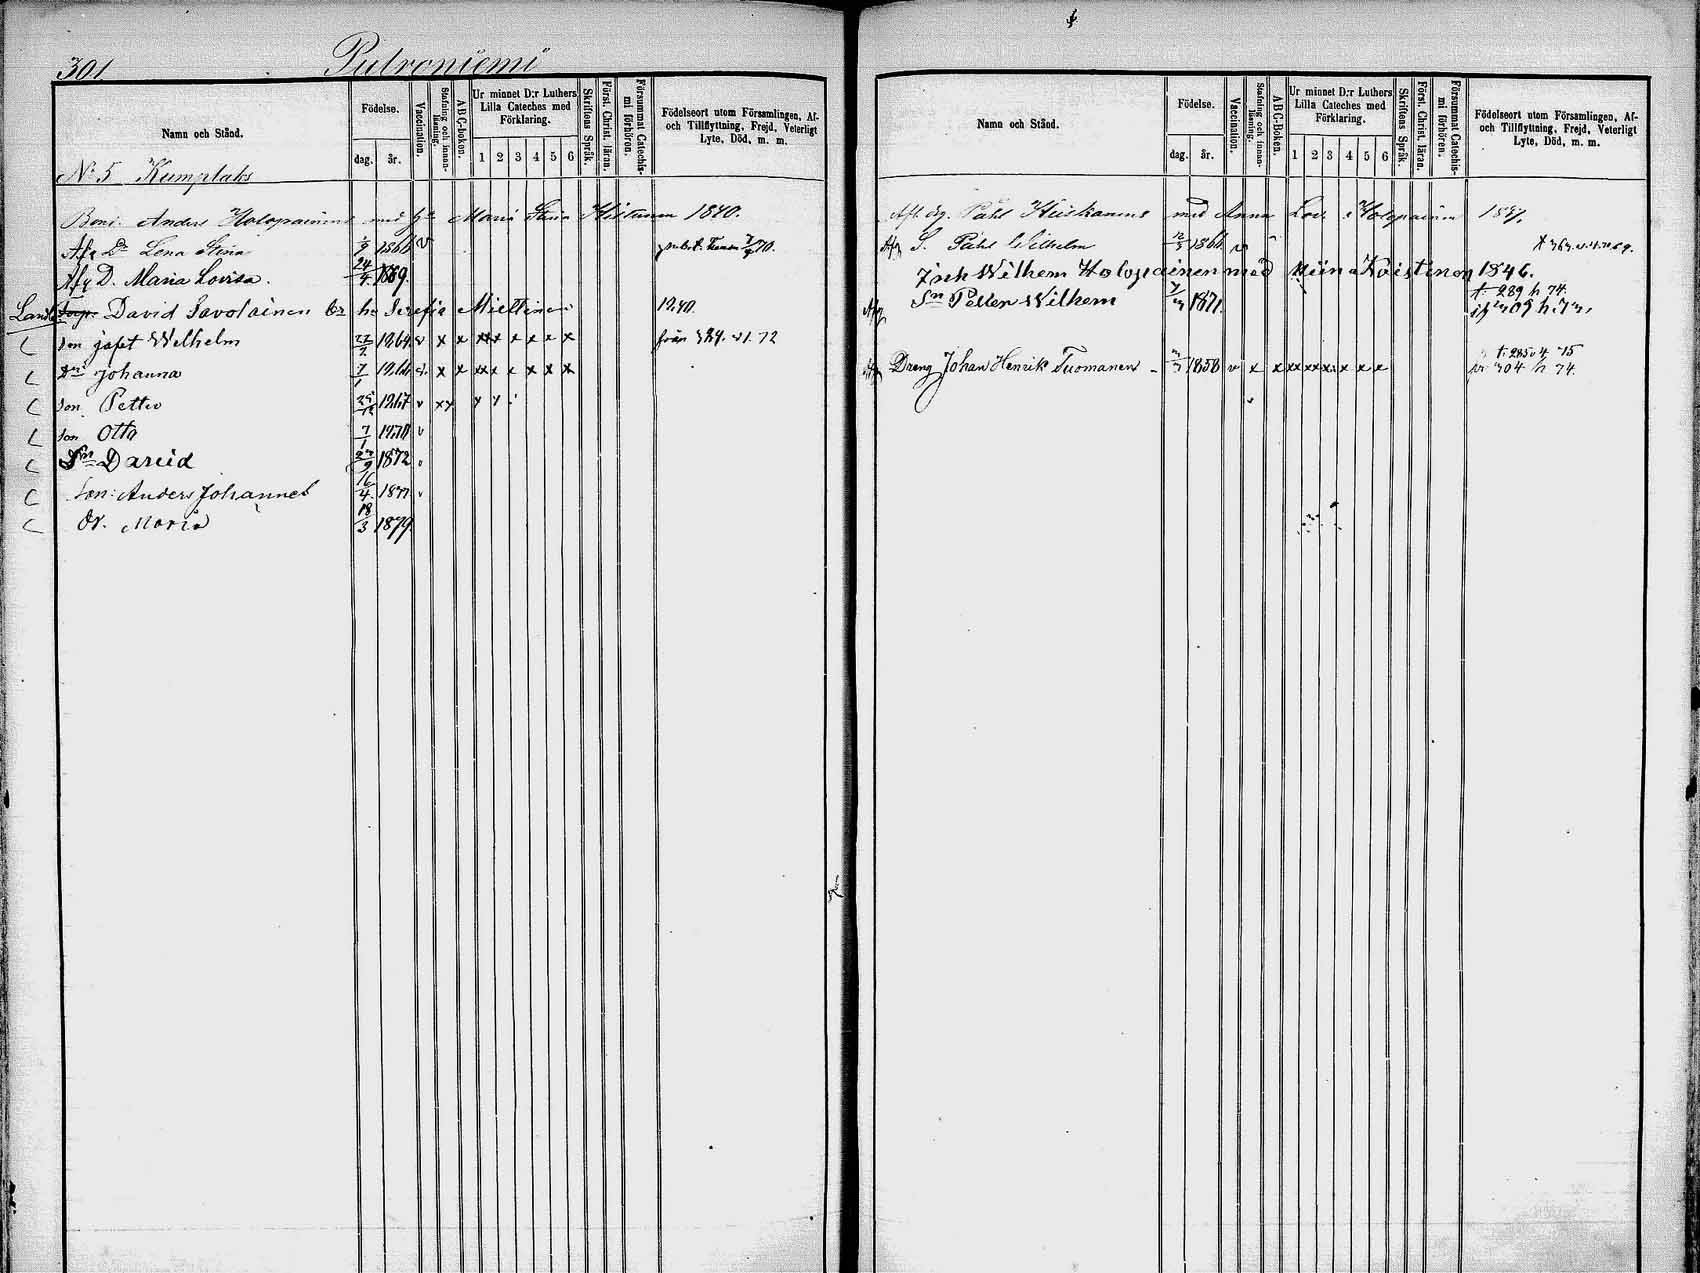 301
Putroniemi
Namn och Stånd.
Födelse.
dag. år.
Vaccination.
Stafning och innanläsning.
ABC-boken.
Ur minnet D:r Luthers Lilla Cateches med Förklaring.
1 2 3 4 5 6
Skriftens Språk.
Först. Christ. läran.
Försummat Catechismi förhören.
Födelseort utom Församlingen, Af- och Tillflyttning, Frejd, Veterligt Lyte, Död, m. m.
No 5 Kumplaks
Anders Holopainens med Maria Stina 1840.
Afg Dr Lena Stina 1866 v
Afg D. Maria Lovisa. 24/9 1869.
David Savolainen h. Serefia Miettinen 1840
Son Jafet Wilhelm 1864 v x x xx x x x x x från 324 v. 1. 72
Dr Johanna 7/1 1866 x x xx x x x x x
Son Petter 25/12 1867 v xx
Son Otto 7/1 1870 v
Sn David 27/9 1872
Son: Anders Johannes 16/4 1877
Dr. Maria 18/3 1879
Namn och Stånd.
Födelse.
dag. år.
Vaccination.
Stafning och innanläsning.
ABC-Boken.
Ur minnet D:r Luthers Lilla Cateches med Förklaring.
1 2 3 4 5 6
Skriftens Språk.
Först. Christ. läran.
Försummat Catechismi förhören.
Födelseort utom Församlingen, Af- och Tillflyttning, Frejd, Veterligt Lyte, Död, m. m.
Påhl Huiskanens med Anna Lov. Holopainen
Afg S. Påhl Wilhelm 12/3 1866 v
Wilhem Holopainen med Kristinen 1846.
t. 289 h 74.
Sn Petter Wilhem 1871.
Afg Dreng Johan Henrik Tuomanen 1858 v x x xx xx x x x x
304 h 74.